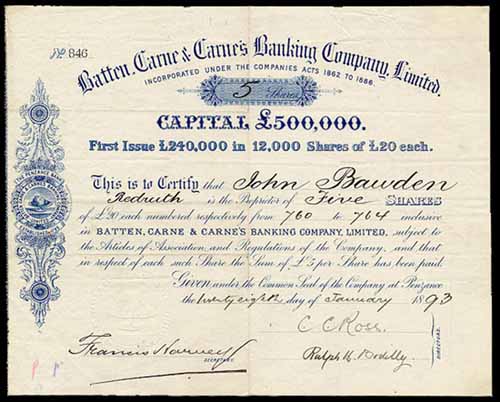 No. 846
Batten, Carne & Carne's Banking Company, Limited.
INCORPORATED UNDER THE COMPANIES ACTS 1862 TO 1886.
5 Shares
CAPITAL £500,000.
First Issue £240,000 in 12,000 Shares of £20 each.
This is to Certify that John Bawden
Redruth is the Proprietor of Five SHARES
of £20 each numbered respectively from 760 to 764 inclusive
in BATTEN, CARNE & CARNE'S BANKING COMPANY, LIMITED, subject to
the Articles of Association, and Regulations of the Company, and that
in respect of each such Share the Sum of £5 per Share has been paid.
Given under the Common Seal of the Company at Penzance
the twenty eighth day of January 1893
C C Ross
Francis Harvey
SECRETARY
Ralph
DIRECTORS.